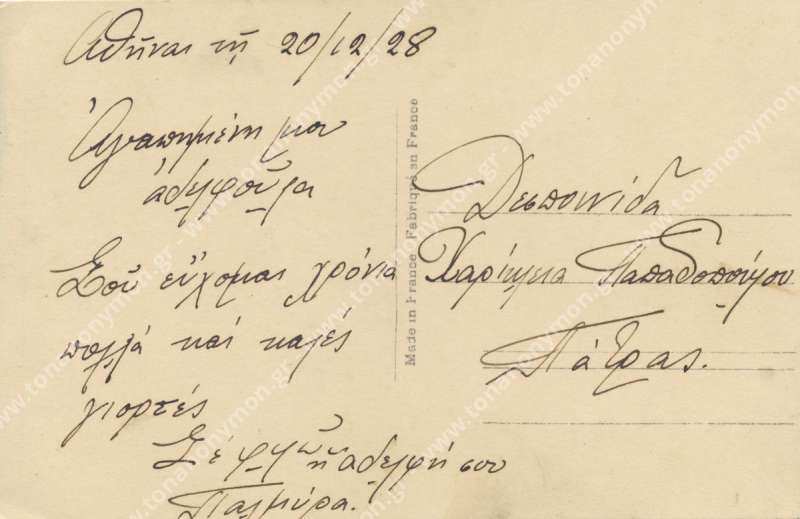 Ἀθῆναι τῇ 20/12/28
Ἀγαπημένη μου
ἀδελφοῦλα
Σοῦ εὔχομαι χρόνια
πολλά καί καλές
γιορτές
Σέ φιλῶ ἡ ἀδελφή σου
Παλμύρα.
Made in France - Fabriqué en France
Δεσποινίδα
Χαρίκλεια Παπαδοπούλου
Πάτρας.
www.tonanonymon.gr